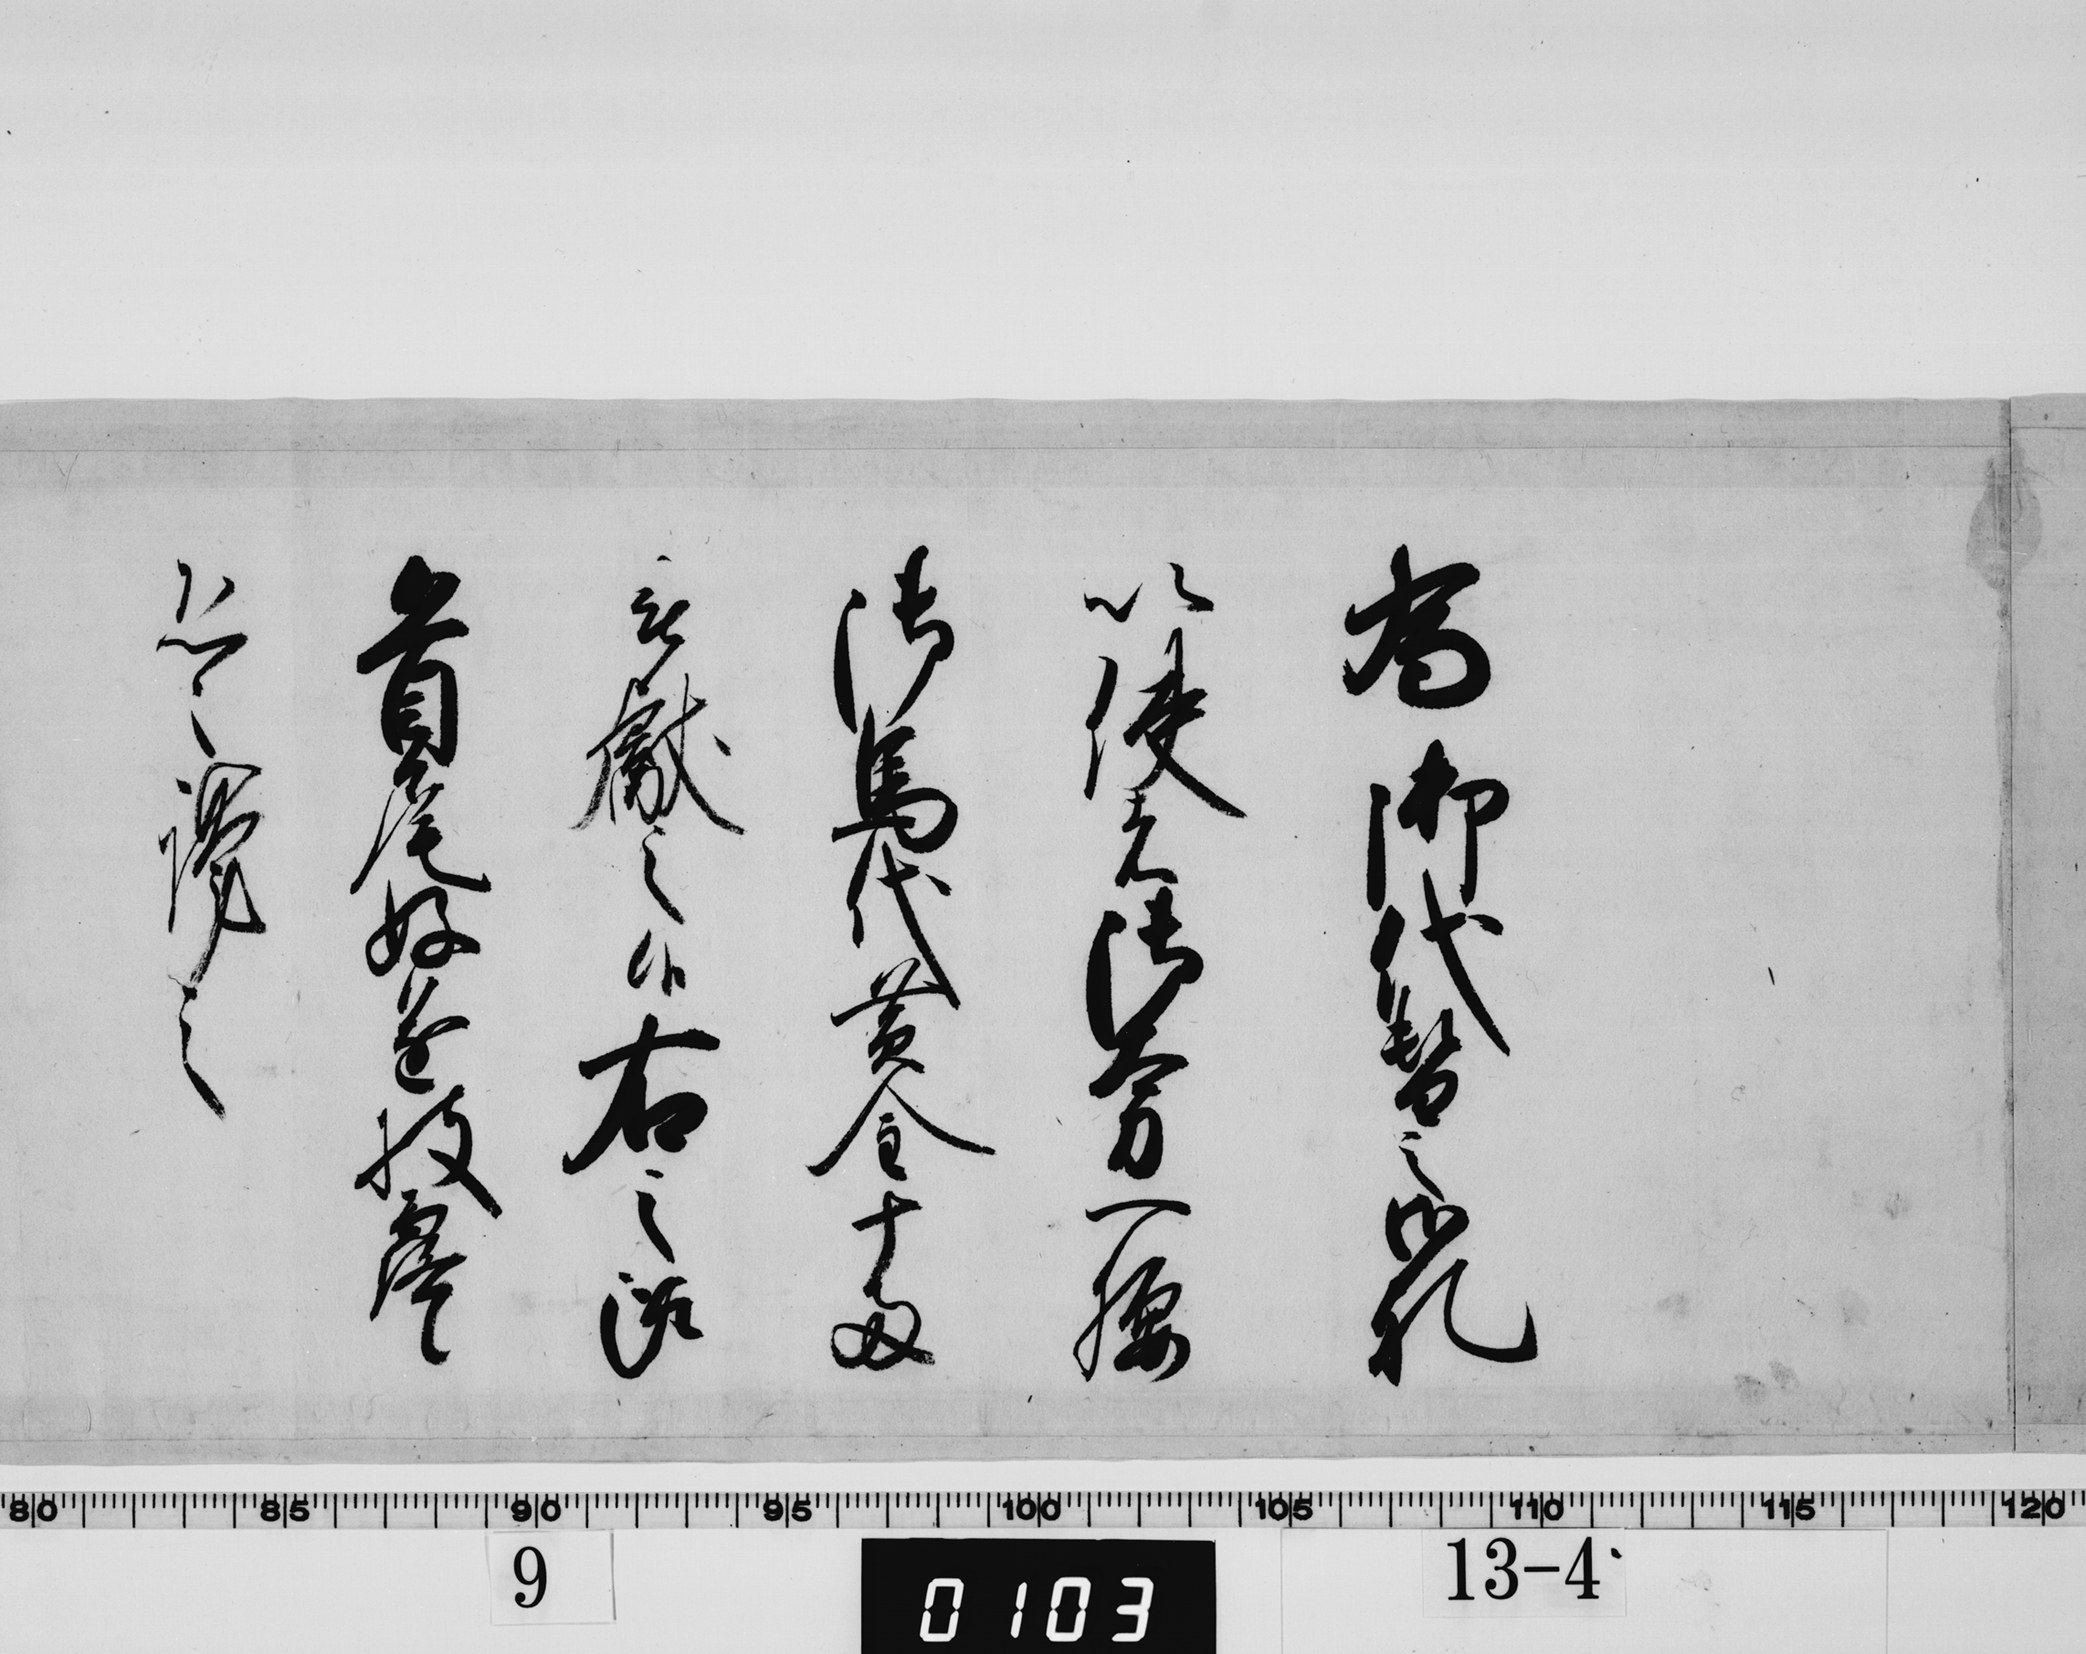 為御代替之御礼
以使者御太刀一腰
御馬代黄金十両
被献之候右之趣
首尾好遂披露
候
80 85 90 95 100 105 110 115 120
9
0103
13-4